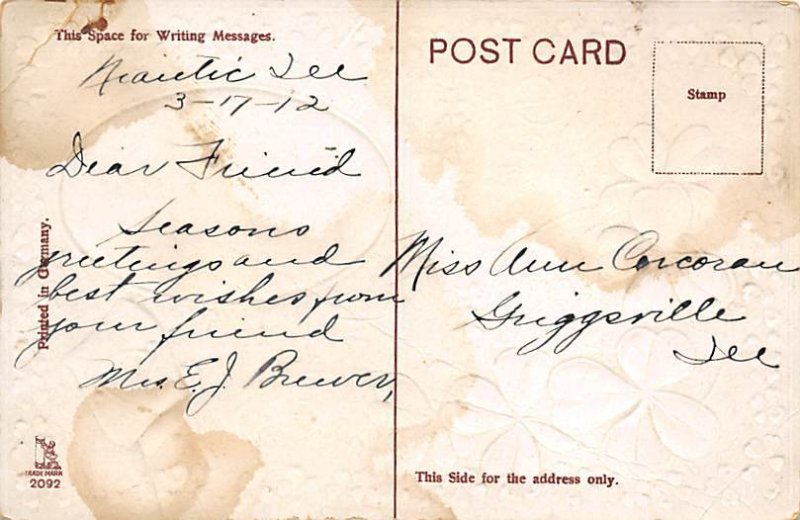 This Space for Writing Messages.
Niantic Ill
3-17-12
Dear Friend
Seasons
greetings and
best wishes from
your friend
Mrs. E. J. Brewer,
Printed in Germany.
TRADE MARK
2092
POST CARD
Stamp
Miss Ann Corcoran
Griggsville
Ill
This Side for the address only.